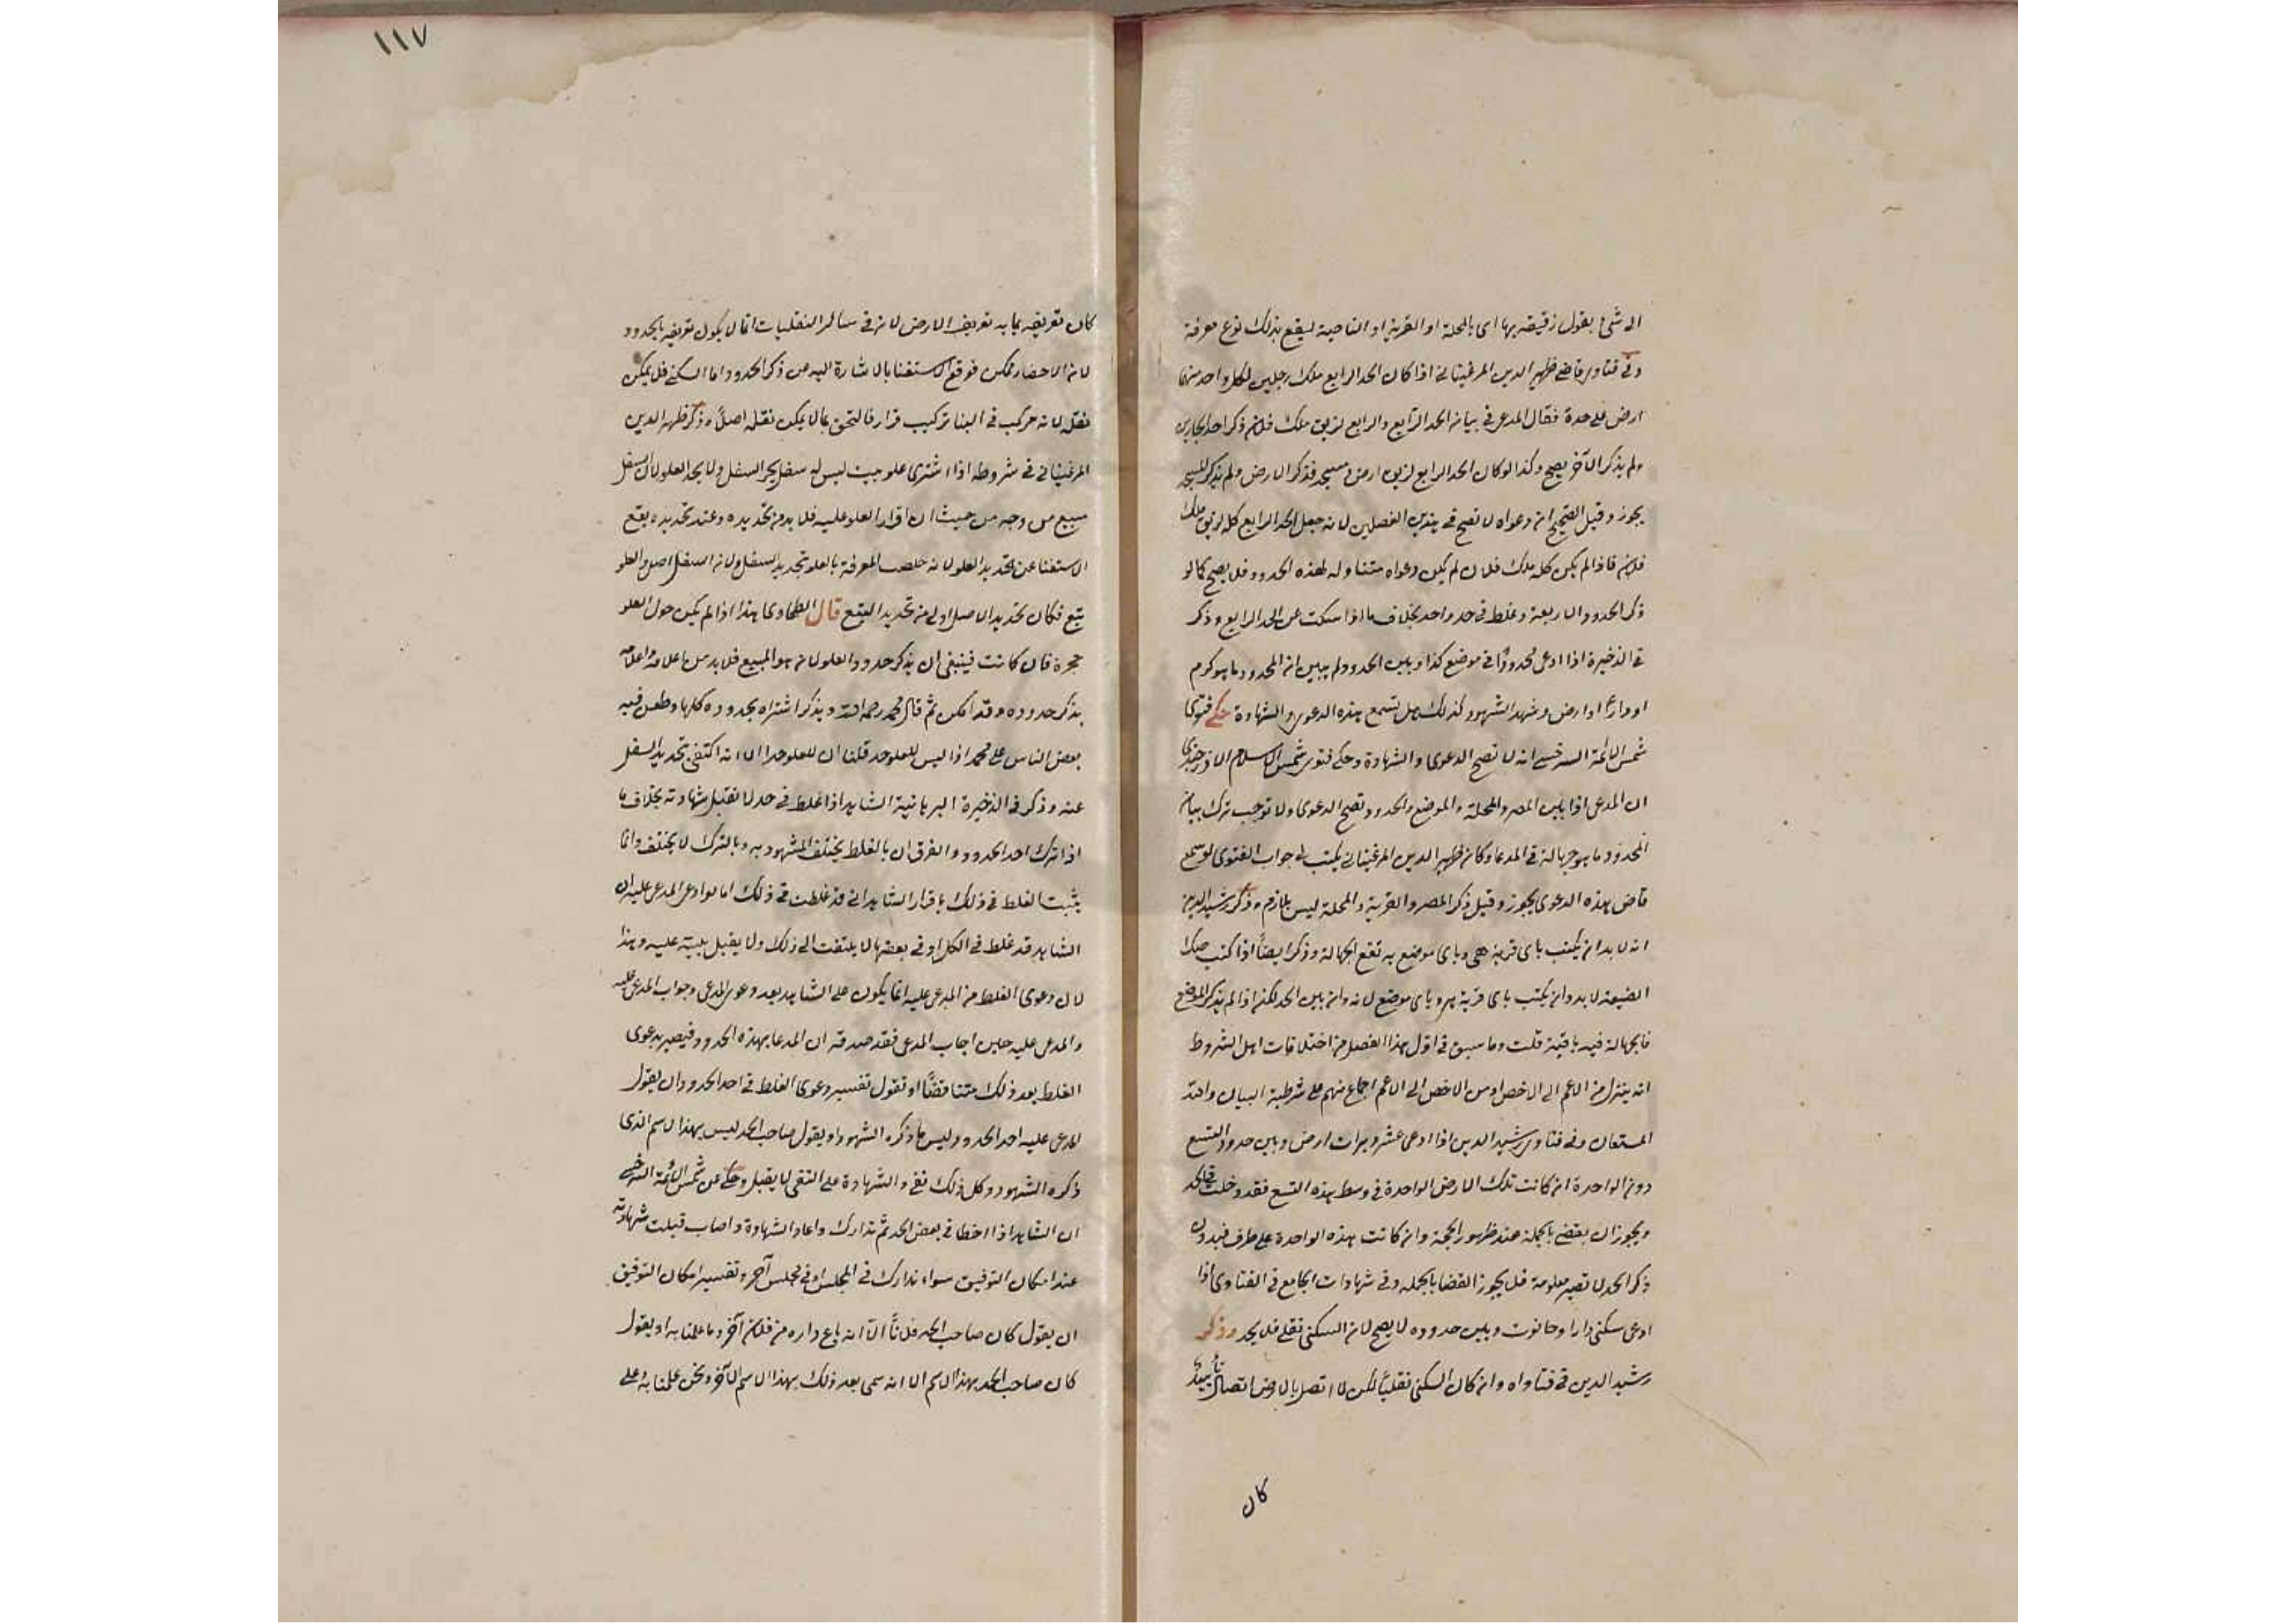 الى شئ بقول زقيقه بها اى بالمحلة او القرية او الناحية ليقع بذلك نوع معرفة
وفى فتاوى قاضى ظهير الدين المرغينانى اذا كان الحد الرابع ملك رجلين لكل واحد منهما
ارض على حدة فقال المدعى فى بيان الحد الرابع والرابع لزيق ملك فلان ذكر احد الجارين
ولم يذكر الآخر يصح وكذا لو كان الحد الرابع لزيق ارض ومسجد فذكر الارض ولم يذكر المسجد
يجوز وقيل الصحيح ان دعواه لا تصح فى هذين الفصلين لانه جعل الحد الرابع كله لزيق ملك
فلان فاذا لم يكن كله ملك فلان لم يكن دعواه متناوله لهذه الحدود فلا يصح كما لو
ذكر الحدود الاربعة وغلط فى حد واحد بخلاف ما اذا سكت عن الحد الرابع وذكر
فى الذخيرة اذا ادعى محدودًا فى موضع كذا وبين الحدود ولم يبين ان المحدود ما هو كرم
او دار او ارض وشهد الشهود كذلك هل تسمع هذه الدعوى والشهادة حكى فتوى
شمس الائمة السرخسى انه لا تصح الدعوى والشهادة وحكى فتوى شمس الاسلام الاوزجندى
ان المدعى اذا بين المصر والمحلة والموضع والحدود تصح الدعوى ولا توجب ترك بيان
المحدود ما هو جهالة فى المدعا وكان ظهير الدين المرغينانى يكتب فى جواب الفتوى لو سمع
قاض هذه الدعوى يجوز وقيل ذكر المصر والقرية والمحلة ليس بلازم وذكر رشيد الدين
انه لا بد ان يكتب باى قرية هى وباى موضع به تقع الجهالة وذكر ايضًا اذا كتب صكا
الضيعة لا بد وان يكتب باى قرية هو وباى موضع لانه وان بين الحد لكن اذا لم يذكر الموضع
فالجهالة فيه باقية قلت وما سبق فى اول هذا الفصل من اختلافات اهل الشروط
انه ينزل من الاعم الى الاخص او من الاخص الى الاعم اجماع منهم على شرطية البيان والله
المستعان وفى فتاوى رشيد الدين اذا ادعى عشر دبرات ارض وبين حدود التسع
دون الواحدة ان كانت تلك الارض الواحدة فى وسط هذه التسع فقد دخلت فى الحد
ويجوز ان يقضى بالجملة عند ظهور الحجة وان كانت هذه الواحدة على طرف فبدون
ذكر الحد لا تصير معلومة فلا يجوز القضا بالجمله وفى شهادات الجامع فى الفتاوى اذا
ادعى سكنى دارا وحانوت وبين حدوده لا يصح لان السكنى نقلى فلا يحد وذكر
رشيد الدين فى فتاواه وان كان السكنى نقليًا لكن لما اتصل بالارض اتصال تأبيد
كان
١١٧
كان تعريفه بما به تعريف الارض لانه فى سائر النقليات انما لا يكون تعريفه بالحدود
لان الاحضار ممكن فوقع الاستغنا بالاشارة اليه من ذكر الحدود اما السكنى فلا يمكن
نقله لانه مركب فى البنا تركيب قرار فالتحق بما لا يمكن نقله اصلا وذكر ظهير الدين
المرغينانى فى شروطه اذا اشترى علو بيت ليس له سفل يحد السفل ولا يحد العلو لان السفل
مبيع من وجه من حيث ان اقرار العلو عليه فلا بد من تحديده وعند تحديده يقع
الاستغنا عن تحديد العلو لانه خلصت المعرفة بالعلو تحديد السفل ولان السفل اصل والعلو
تبع فكان تحديد الاصل اولى من تحديد التبع قال الطحاوى هذا اذا لم يكن حول العلو
حجرة فان كانت فينبغى ان يذكر حدود العلو لانه هو المبيع فلا بد من اعلامه واعلامه
بذكر حدوده وقد امكن ثم قال محمد رحمه الله ويذكر اشتراه بحدوده كلها وطعن فيه
بعض الناس على محمد اذا ليس للعلو حد قلنا ان للعلو حدا الا انه اكتفى بتحديد السفل
عنه وذكر فى الذخيرة البرهانية الشاهد اذا غلط فى حد لا تقبل شهادته بخلاف ما
اذا ترك احد الحدود والفرق ان بالغلط يختلف المشهود به وبالترك لا يختلف وانما
يثبت الغلط فى ذلك باقرار الشاهد انى قد غلطت فى ذلك اما لو ادعى المدعى عليه ان
الشاهد قد غلط فى الكل او فى بعضها لا يلتفت الى ذلك ولا يقبل بينة عليه وهذا
لان دعوى الغلط من المدعى عليه انما يكون على الشاهد بعد دعوى المدعى وجواب المدعى عليه
والمدعى عليه حين اجاب المدعى فقد صدقه ان المدعا بهذه الحدود فيصير بدعوى
الغلط بعد ذلك متناقضًا او تقول تفسير دعوى الغلط فى احد الحدود ان يقول
المدعى عليه احد الحدود وليس ما ذكره الشهود او يقول صاحب الحد ليس بهذا الاسم الذى
ذكره الشهود وكل ذلك نفى والشهادة على النفى لا يقبل وحكى عن شمس الائمة السرخسى
ان الشاهد اذا اخطا فى بعض الحد ثم تدارك واعاد الشهادة واصاب قبلت شهادته
عند امكان التوفيق سواء تدارك فى المجلس او فى مجلس آخر وتفسير امكان التوفيق
ان يقول كان صاحب الحد فلانًا الا انه باع داره من فلان آخر وما علمنا به او يقول
كان صاحب الحد بهذا الاسم الا انه سمى بعد ذلك بهذا الاسم الآخر ونحن علمنا به وعلى